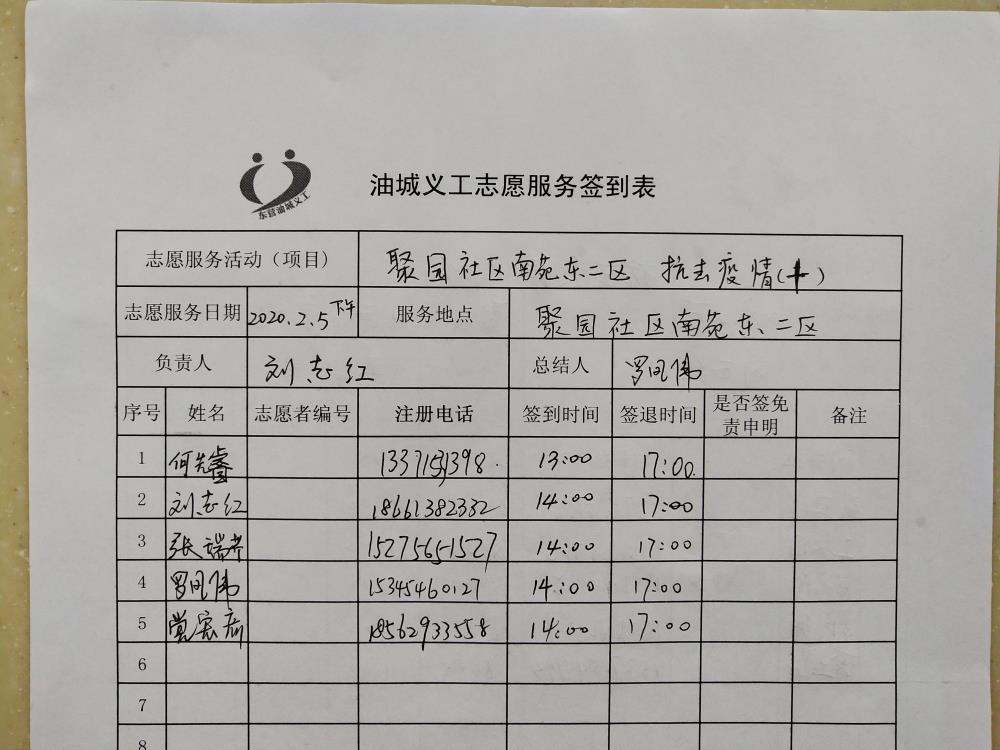 东营油城义工
油城义工志愿服务签到表
志愿服务活动（项目） 聚园社区南苑东二区 抗击疫情(十)
志愿服务日期 2020.2.5下午 服务地点 聚园社区南苑东、二区
负责人 刘志红 总结人 罗凤伟
序号 姓名 志愿者编号 注册电话 签到时间 签退时间 是否签免责申明 备注
1 何先睿 13:00 17:00
2 刘志红 18661382332 14:00 17:00
3 张瑞芹 15275651527 14:00 17:00
4 罗凤伟 15345460127 14:00 17:00
5 18562933558 14:00 17:00
6
7
8